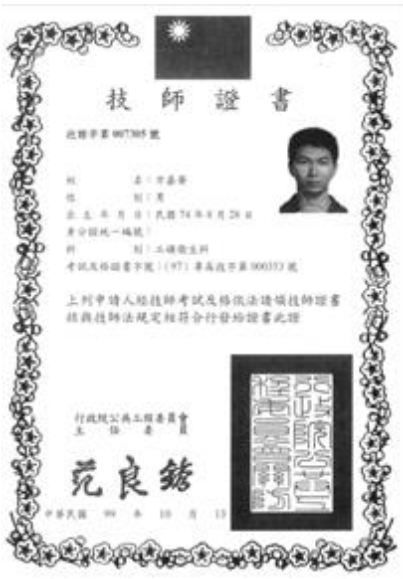 技師證書
技證字第 007305 號
姓名：方嘉華
性別：男
出生年月日：民國 74 年 8 月 28 日
身分證統一編號：
科別：工礦衛生科
考試及格證書字號：(97) 專高技字第 000353 號
上列申請人經技師考試及格依法請領技師證書
核與技師法規定相符合行發給證書此證
行政院公共工程委員會
主任委員
范良銹
中華民國 99 年 10 月 13